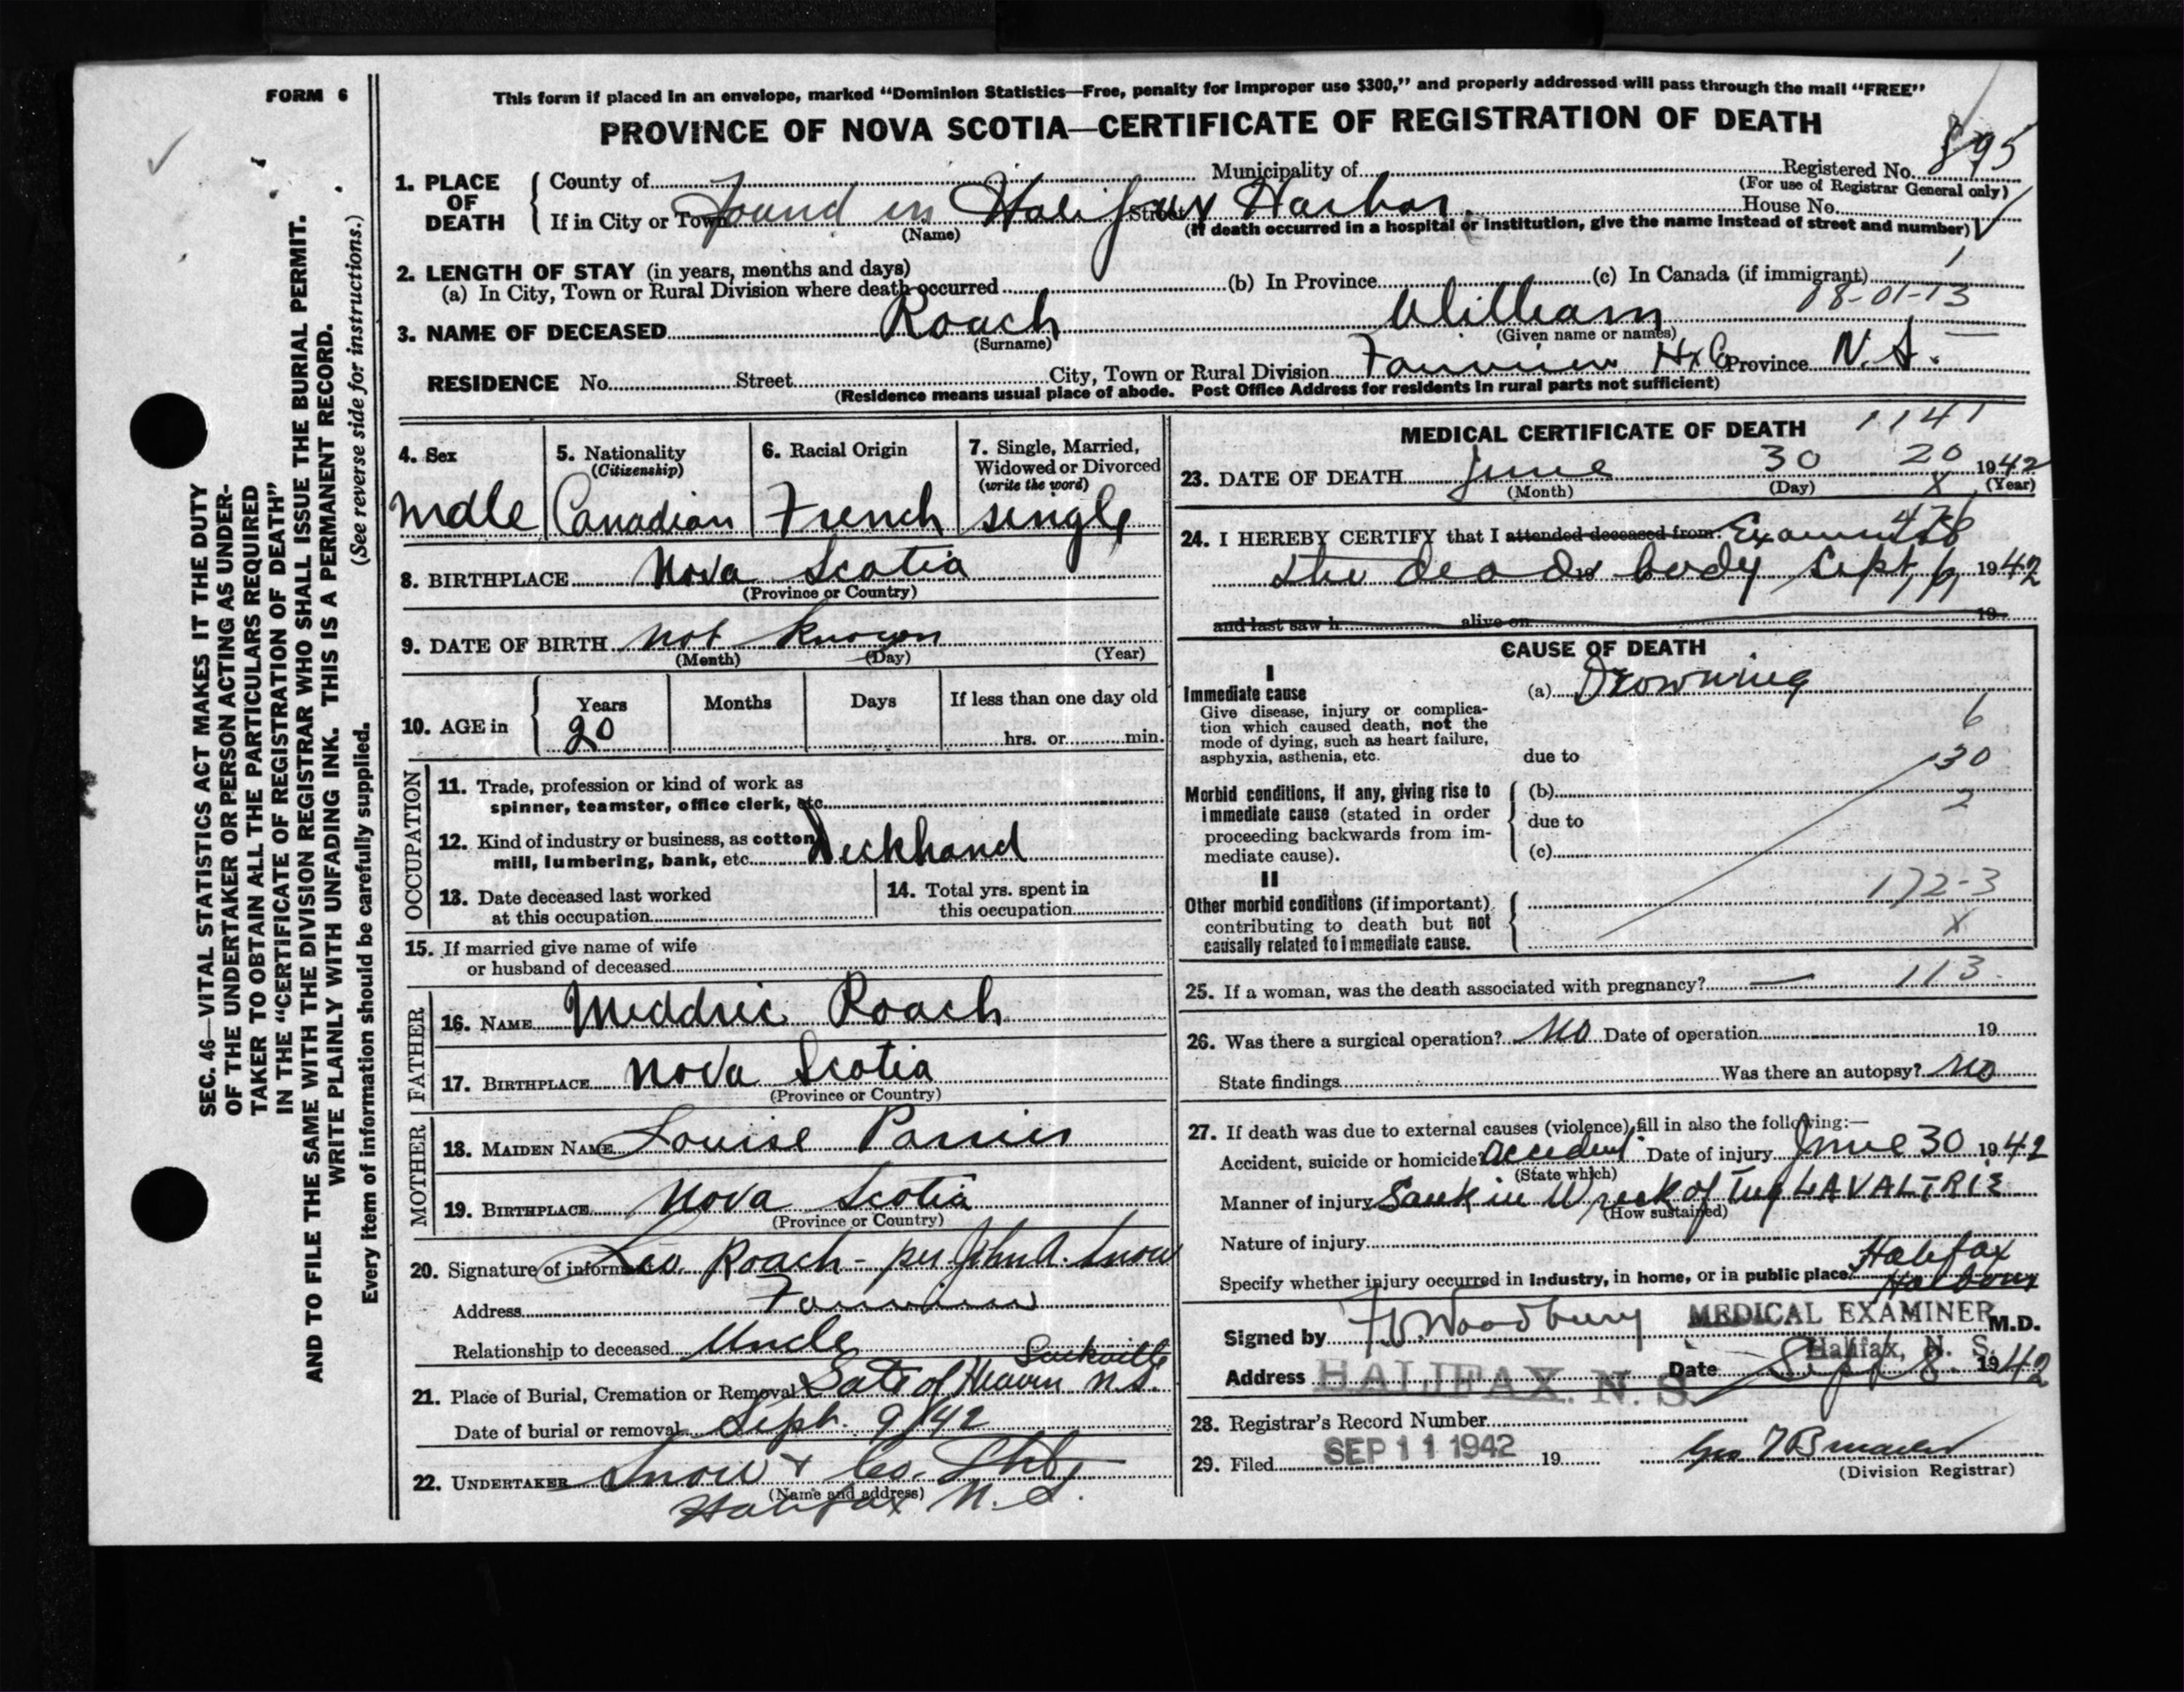 FORM 6
This form if placed in an envelope, marked "Dominion Statistics—Free, penalty for improper use $300," and properly addressed will pass through the mail "FREE"
PROVINCE OF NOVA SCOTIA—CERTIFICATE OF REGISTRATION OF DEATH
SEC. 46—VITAL STATISTICS ACT MAKES IT THE DUTY
OF THE UNDERTAKER OR PERSON ACTING AS UNDER-
TAKER TO OBTAIN ALL THE PARTICULARS REQUIRED
IN THE "CERTIFICATE OF REGISTRATION OF DEATH"
AND TO FILE THE SAME WITH THE DIVISION REGISTRAR WHO SHALL ISSUE THE BURIAL PERMIT.
WRITE PLAINLY WITH UNFADING INK. THIS IS A PERMANENT RECORD.
(See reverse side for instructions.)
Every item of information should be carefully supplied.
1. PLACE OF DEATH
County of Municipality of Registered No. 895
(For use of Registrar General only)
If in City or Town Found in Halifax Harbor Street House No.
(Name) (If death occurred in a hospital or institution, give the name instead of street and number)
1
2. LENGTH OF STAY (in years, months and days)
(a) In City, Town or Rural Division where death occurred (b) In Province (c) In Canada (if immigrant)
08-01-13
3. NAME OF DECEASED Roach William
(Surname) (Given name or names)
RESIDENCE No. Street City, Town or Rural Division Fairview Hx Co Province N.S.
(Residence means usual place of abode. Post Office Address for residents in rural parts not sufficient)
4. Sex
male
5. Nationality
(Citizenship)
Canadian
6. Racial Origin
French
7. Single, Married,
Widowed or Divorced
(write the word)
single
8. BIRTHPLACE Nova Scotia
(Province or Country)
9. DATE OF BIRTH not known
(Month) (Day) (Year)
10. AGE in
Years Months Days If less than one day old
20 hrs. or min.
OCCUPATION
11. Trade, profession or kind of work as
spinner, teamster, office clerk, etc.
12. Kind of industry or business, as cotton
mill, lumbering, bank, etc. Deckhand
13. Date deceased last worked
at this occupation
14. Total yrs. spent in
this occupation
15. If married give name of wife
or husband of deceased
FATHER
16. NAME Meddric Roach
17. BIRTHPLACE Nova Scotia
(Province or Country)
MOTHER
18. MAIDEN NAME Louise
19. BIRTHPLACE Nova Scotia
(Province or Country)
20. Signature of informant Leo Roach - per John A. Snow
Address Fairview
Relationship to deceased Uncle
Sackville
21. Place of Burial, Cremation or Removal Gate of Heaven N.S.
Date of burial or removal Sept. 9/42
22. UNDERTAKER Snow & Co. Ltd
(Name and address)
Halifax N.S.
MEDICAL CERTIFICATE OF DEATH 1141
20
23. DATE OF DEATH June 30 1942
(Month) (Day) (Year)
X
24. I HEREBY CERTIFY that I attended deceased from: Examined
the dead body Sept 6, 1942
and last saw h alive on 19
CAUSE OF DEATH
I
Immediate cause
Give disease, injury or complica-
tion which caused death, not the
mode of dying, such as heart failure,
asphyxia, asthenia, etc.
(a) Drowning
6
due to
130
Morbid conditions, if any, giving rise to
immediate cause (stated in order
proceeding backwards from im-
mediate cause).
(b)
2
due to
(c)
II
Other morbid conditions (if important)
contributing to death but not
causally related to immediate cause.
172-3
X
25. If a woman, was the death associated with pregnancy? — 113
26. Was there a surgical operation? No Date of operation 19
State findings Was there an autopsy? No
27. If death was due to external causes (violence) fill in also the following:—
Accident, suicide or homicide? accident Date of injury June 30 1942
(State which)
Manner of injury Sank in Wreck of Tug LAVALTRIE
(How sustained)
Nature of injury
Specify whether injury occurred in industry, in home, or in public place Halifax
Harbour
Signed by Woodbury MEDICAL EXAMINER M.D.
Halifax, N. S.
Address HALIFAX. N. S. Date Sept 8 1942
28. Registrar's Record Number
29. Filed SEP 11 1942 19
(Division Registrar)